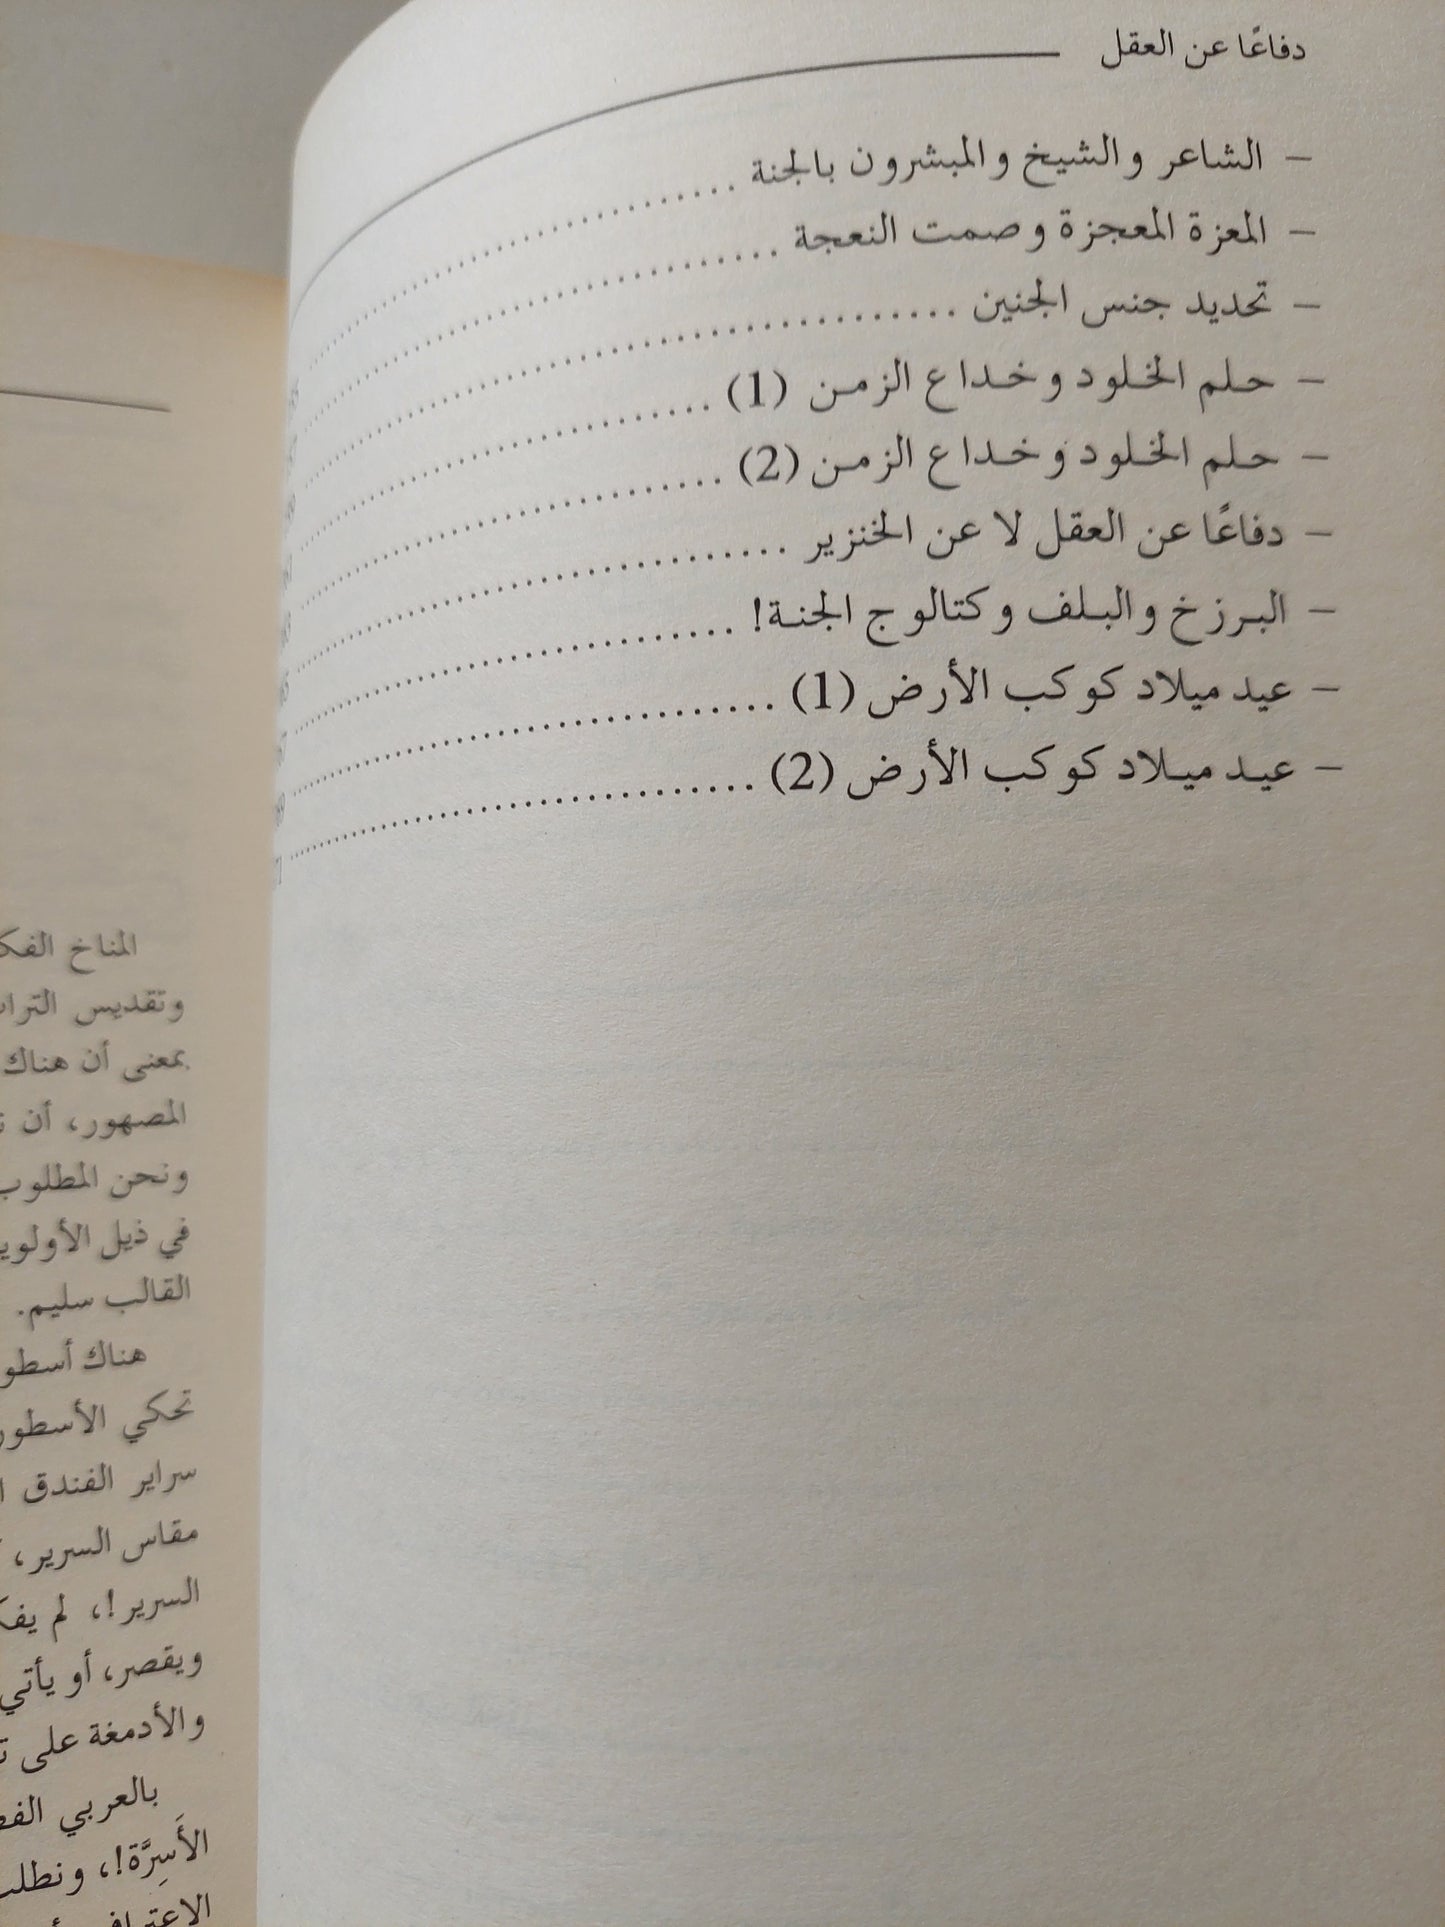 دفاعًا عن العقل
– الشاعر والشيخ والمبشرون بالجنة
– المعزة المعجزة وصمت النعجة
– تحديد جنس الجنين
– حلم الخلود وخداع الزمن (1)
– حلم الخلود وخداع الزمن (2)
– دفاعًا عن العقل لا عن الخنزير
– البرزخ والبلف وكتالوج الجنة!
– عيد ميلاد كوكب الأرض (1)
– عيد ميلاد كوكب الأرض (2)
المناخ
وتقديس
بمعنى أن هناك
المصهور، أن
ونحن المطلوب
في ذيل
القالب سليم.
هناك
تحكي
سراير الفندق
مقاس السرير،
السرير!، لم
ويقصر، أو يأتي
والأدمغة على
بالعربي
الأَسِرَّة!،